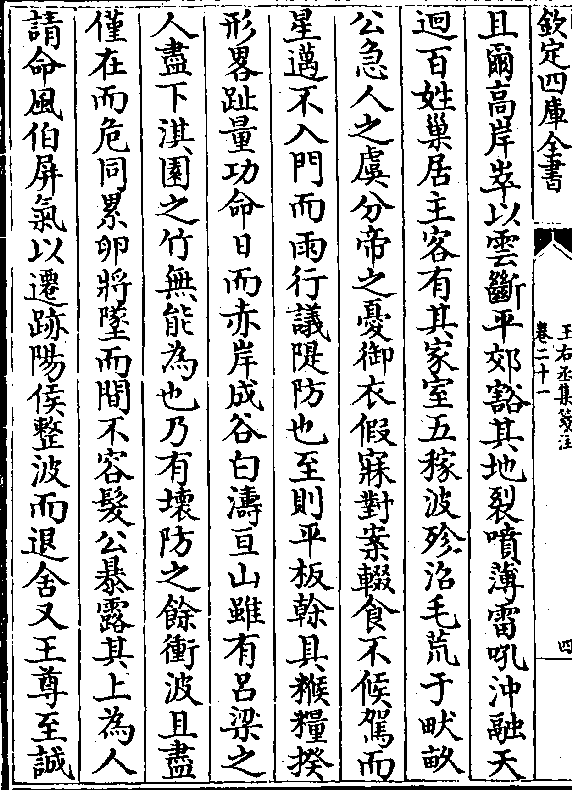 欽定四庫全書
王右丞集箋注
卷二十一
四
且爾高岸崒以雲斷平郊豁其地裂噴薄雷吼沖融天
迴百姓巢居主客有其家室五稼波殄沿毛荒于畎畝
公急人之虞分帝之憂御衣假寐對案輟食不候駕而
星邁不入門而雨行議隄防也至則平板榦具餱糧揆
形畧趾量功命日而赤岸成谷白濤亘山雖有呂梁之
人盡下淇園之竹無能為也乃有壞防之餘衝波且盡
僅在而危同累卵將墜而間不容髮公暴露其上為人
請命風伯屏氣以遷跡陽侯整波而退舍又王尊至誠